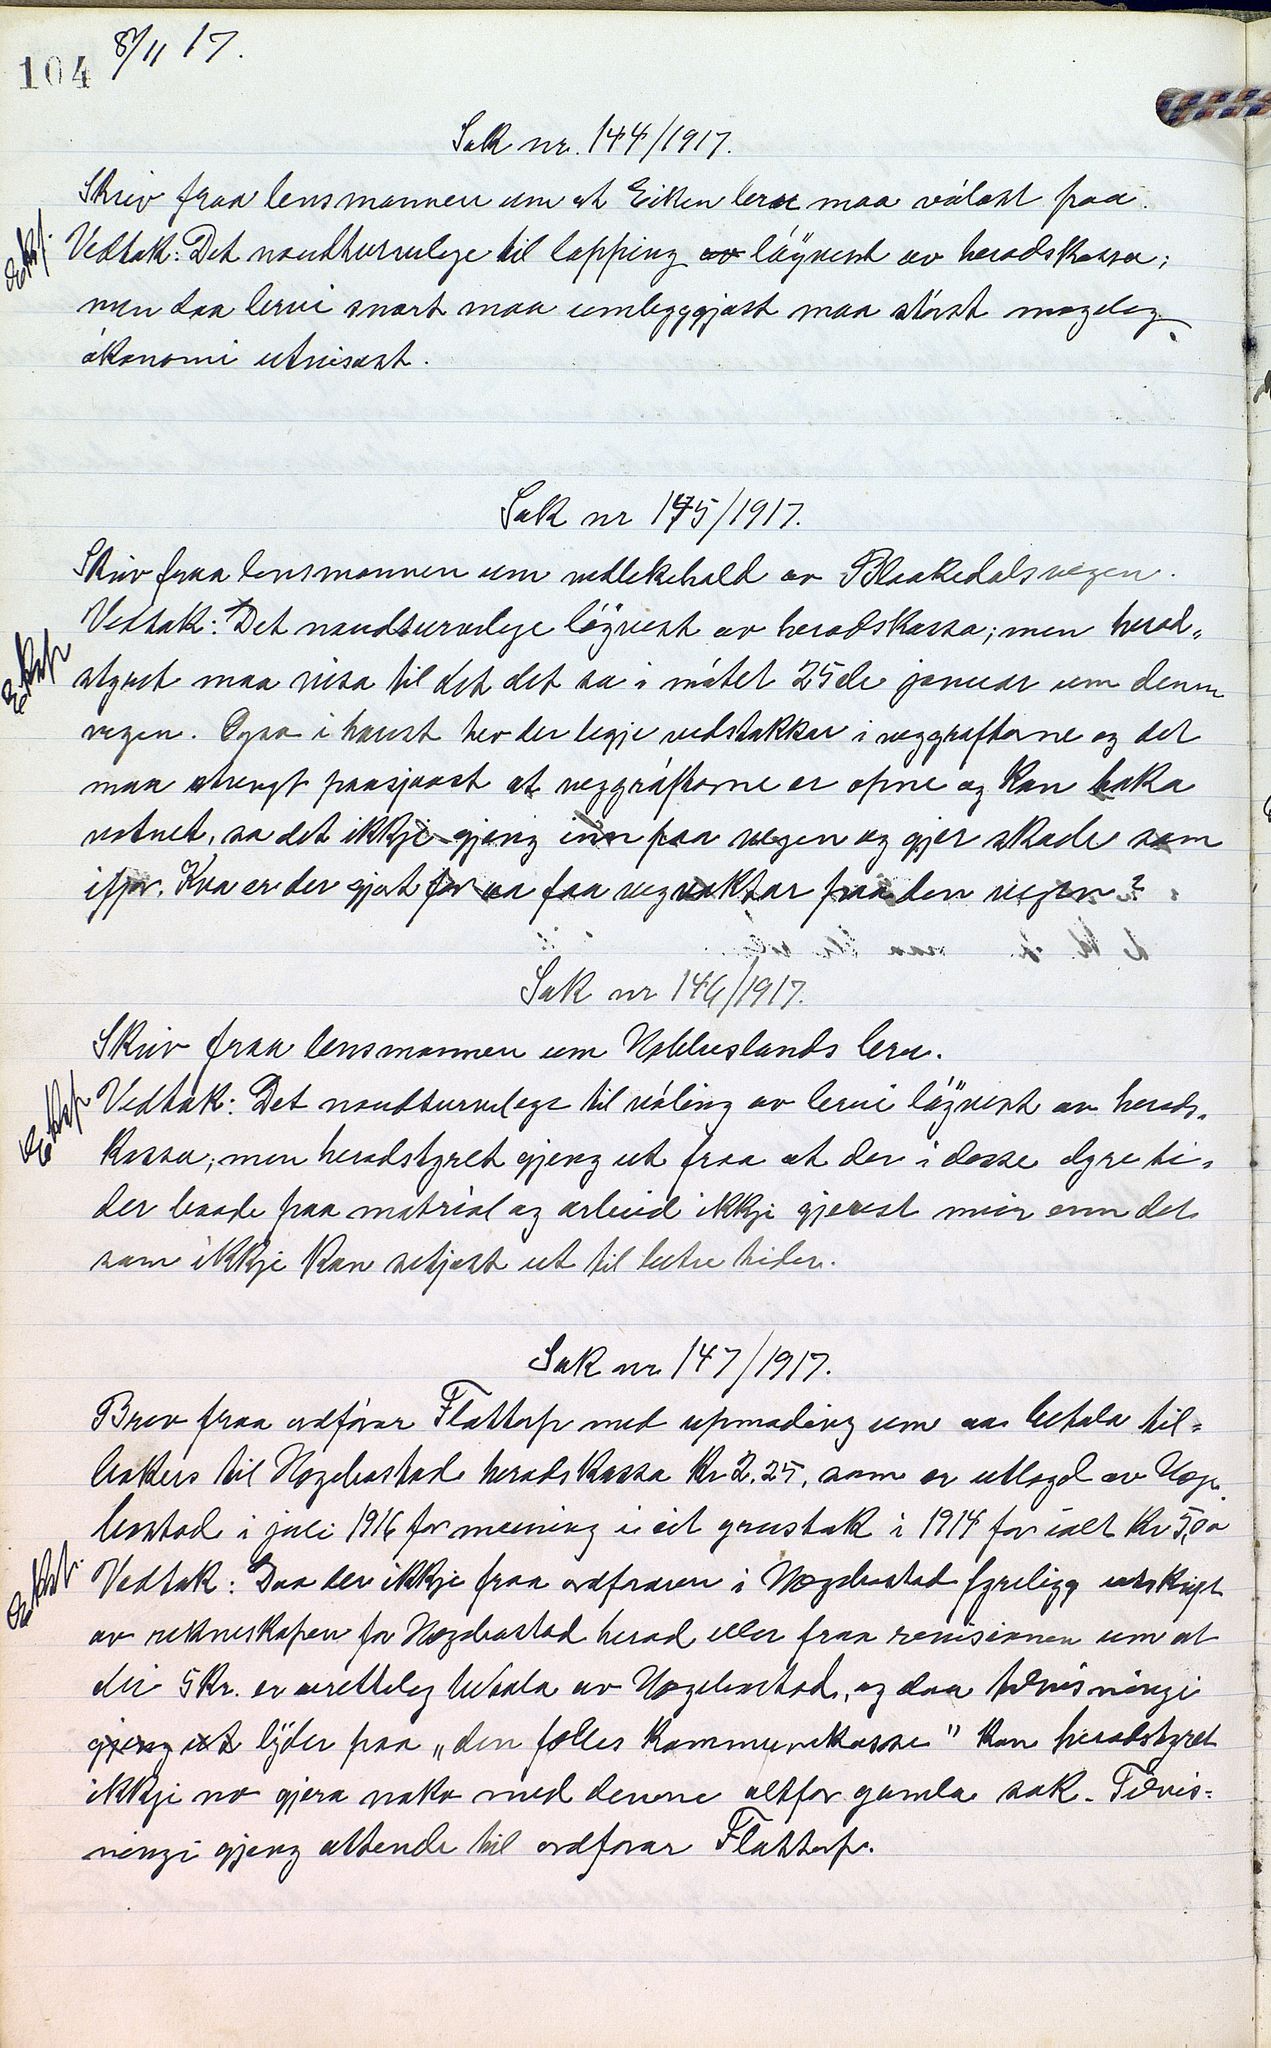 104 8/11 17.
Sak nr. 144/1917.
Skriv fraa lensmannen um at Eiken bru maa vølast paa.
Eksp. Vedtak: Det naudturvulege til lapping av løyvest av heradskassa;
men daa brui snart maa umleggjast maa størst mogeleg
økonomi utvisast.
Sak nr 145/1917.
Skriv fraa lensmannen um vedlikehald av Blaakedalsvegen.
Vedtak: Det naudturvulege løyvest av heradskassa; men herad-
Eksp
styret maa visa til det det sa i møtet 25de januar um denne
vegen. Ogso i haust hev der legje vedstakkar i veggrøfterne og det
maa strengt paasjaast at veggrøfterne er opne og kan taka
vatnet, so det ikkje gjeng inn paa vegen og gjer skade som
ifjor. Kva er der gjort for aa faa vegvaktar paa den vegen?
Sak nr 146/1917.
Skriv fraa lensmannen um Kobbeslands bru.
Eksp Vedtak: Det naudturvulege til vøling av brui løyvest av herads-
kassa; men heradstyret gjeng ut fraa at der i desse dyre ti-
der baade paa matrial og arbeid ikkje gjerest meir enn det
som ikkje kan setjast ut til betre tider.
Sak nr 147/1917.
Brev fraa ordførar Flottorp med upmoding um aa betala til-
bakers til Hægebostad heradskassa kr 2.25, som er utlagd av Hæge-
bostad i juli 1916 for meining i eit grustak i 1914 for ialt kr 5,00
Eksp. Vedtak: Daa der ikkje fraa ordføraren i Hægebostad fyreligg utskrift
av rekneskapen for Hægebostad herad eller fraa revisionen um at
dei 5 kr. er uretteleg betala av Hægebostad, og daa tilvisningi
gjeng ut lyder paa „den fælles kommunekasse" kan heradstyret
ikkje no gjera noko med denne altfor gamla sak. Tilvis-
ningi gjeng attende til ordførar Flottorp.